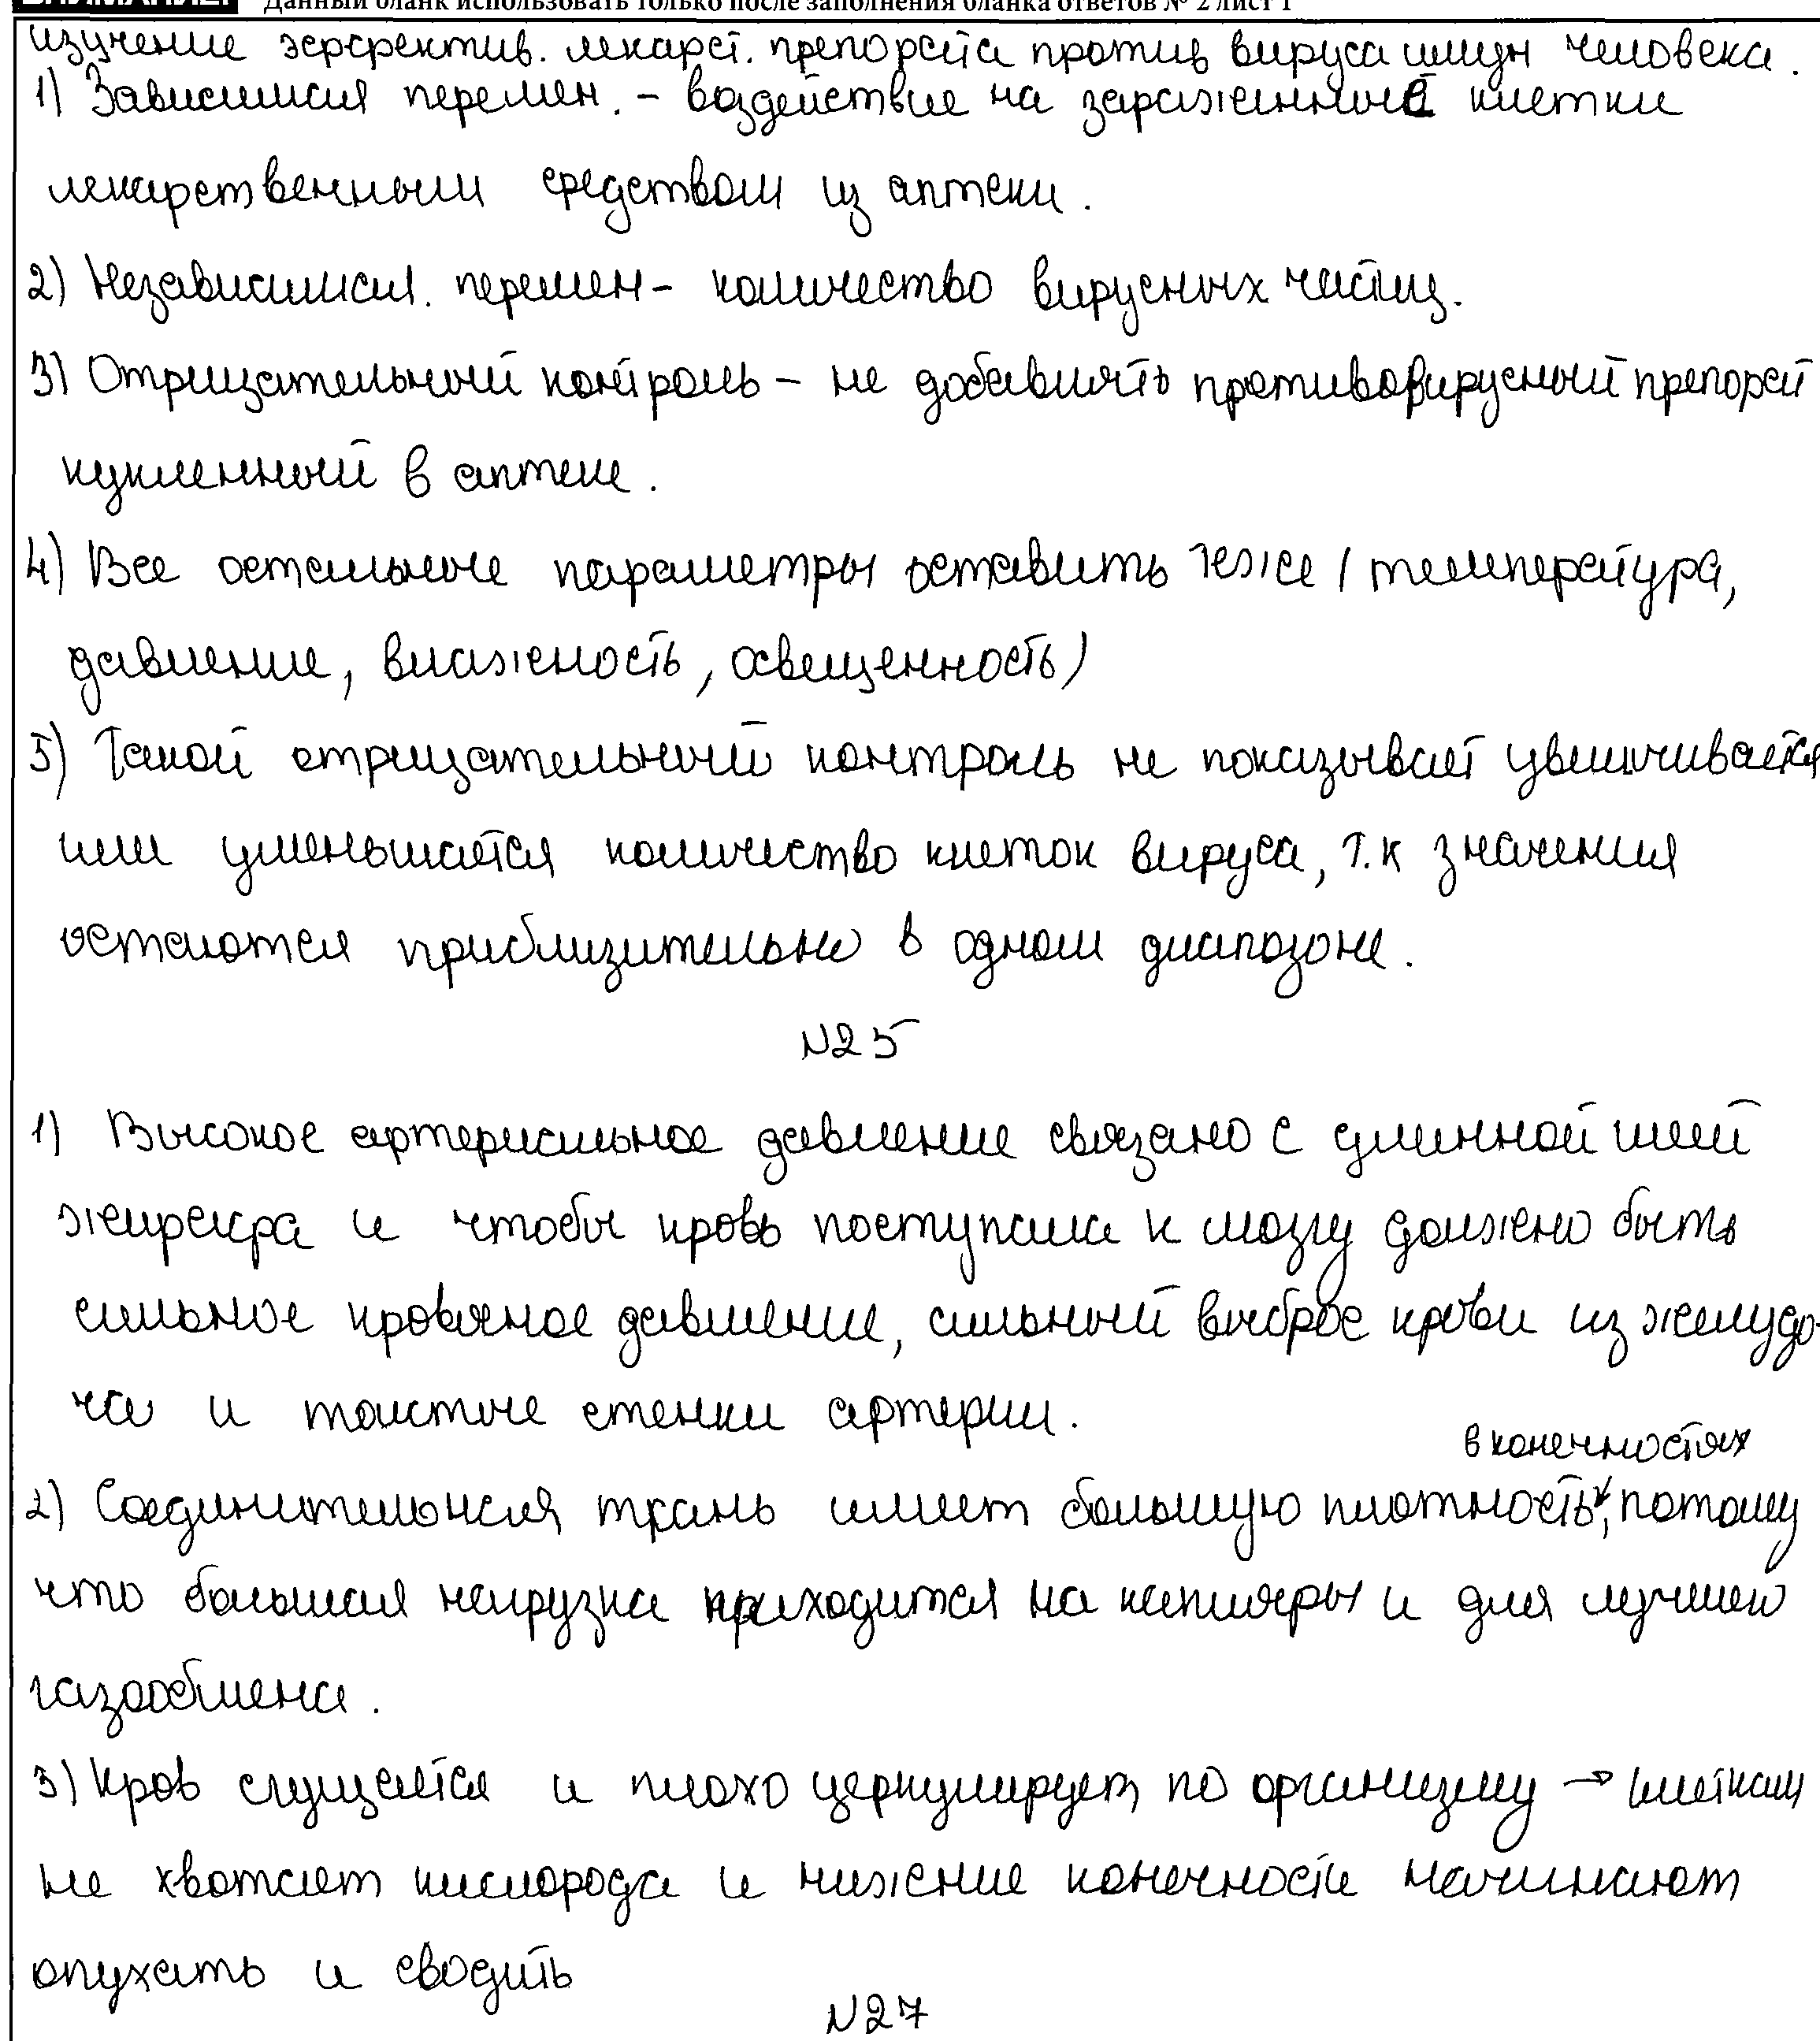 Данный бланк использовать только после заполнения бланка ответов № 2 лист 1
изучение эффектив. лекарст. препората против вируса имун человека.
1) Зависимая перемен. - воздействие на зараженные клетки
лекарственным средством из аптеки.
2) Независимая. перемен - количество вирусных частиц.
3) Отрицательный контроль - не добавлять противовирусный препорат
купленный в аптеке.
4) Все остальные параметры оставить теже (температура,
давление, влажность, освещенность)
5) Такой отрицательный контроль не показывает увеличивается
или уменьшается количество клеток вируса, т.к значения
остаются приблизительно в одном диапозоне.
N25
1) Высокое артериальное давление связано с длинной шей
жирафа и чтобы кровь поступала к мозгу должно быть
сильное кровяное давление, сильный выброс крови из желудо-
чка и толстые стенки артерии.
в конечностях
2) Соединительная ткань имеет большую плотность, потому
что большая нагрузка приходится на капиляры и для лучшего
газообмена.
3) Кров сгущается и плохо церкулирует по организму → клеткам
не хватает кислорода и нижение конечности начинают
опухать и сводить
N27